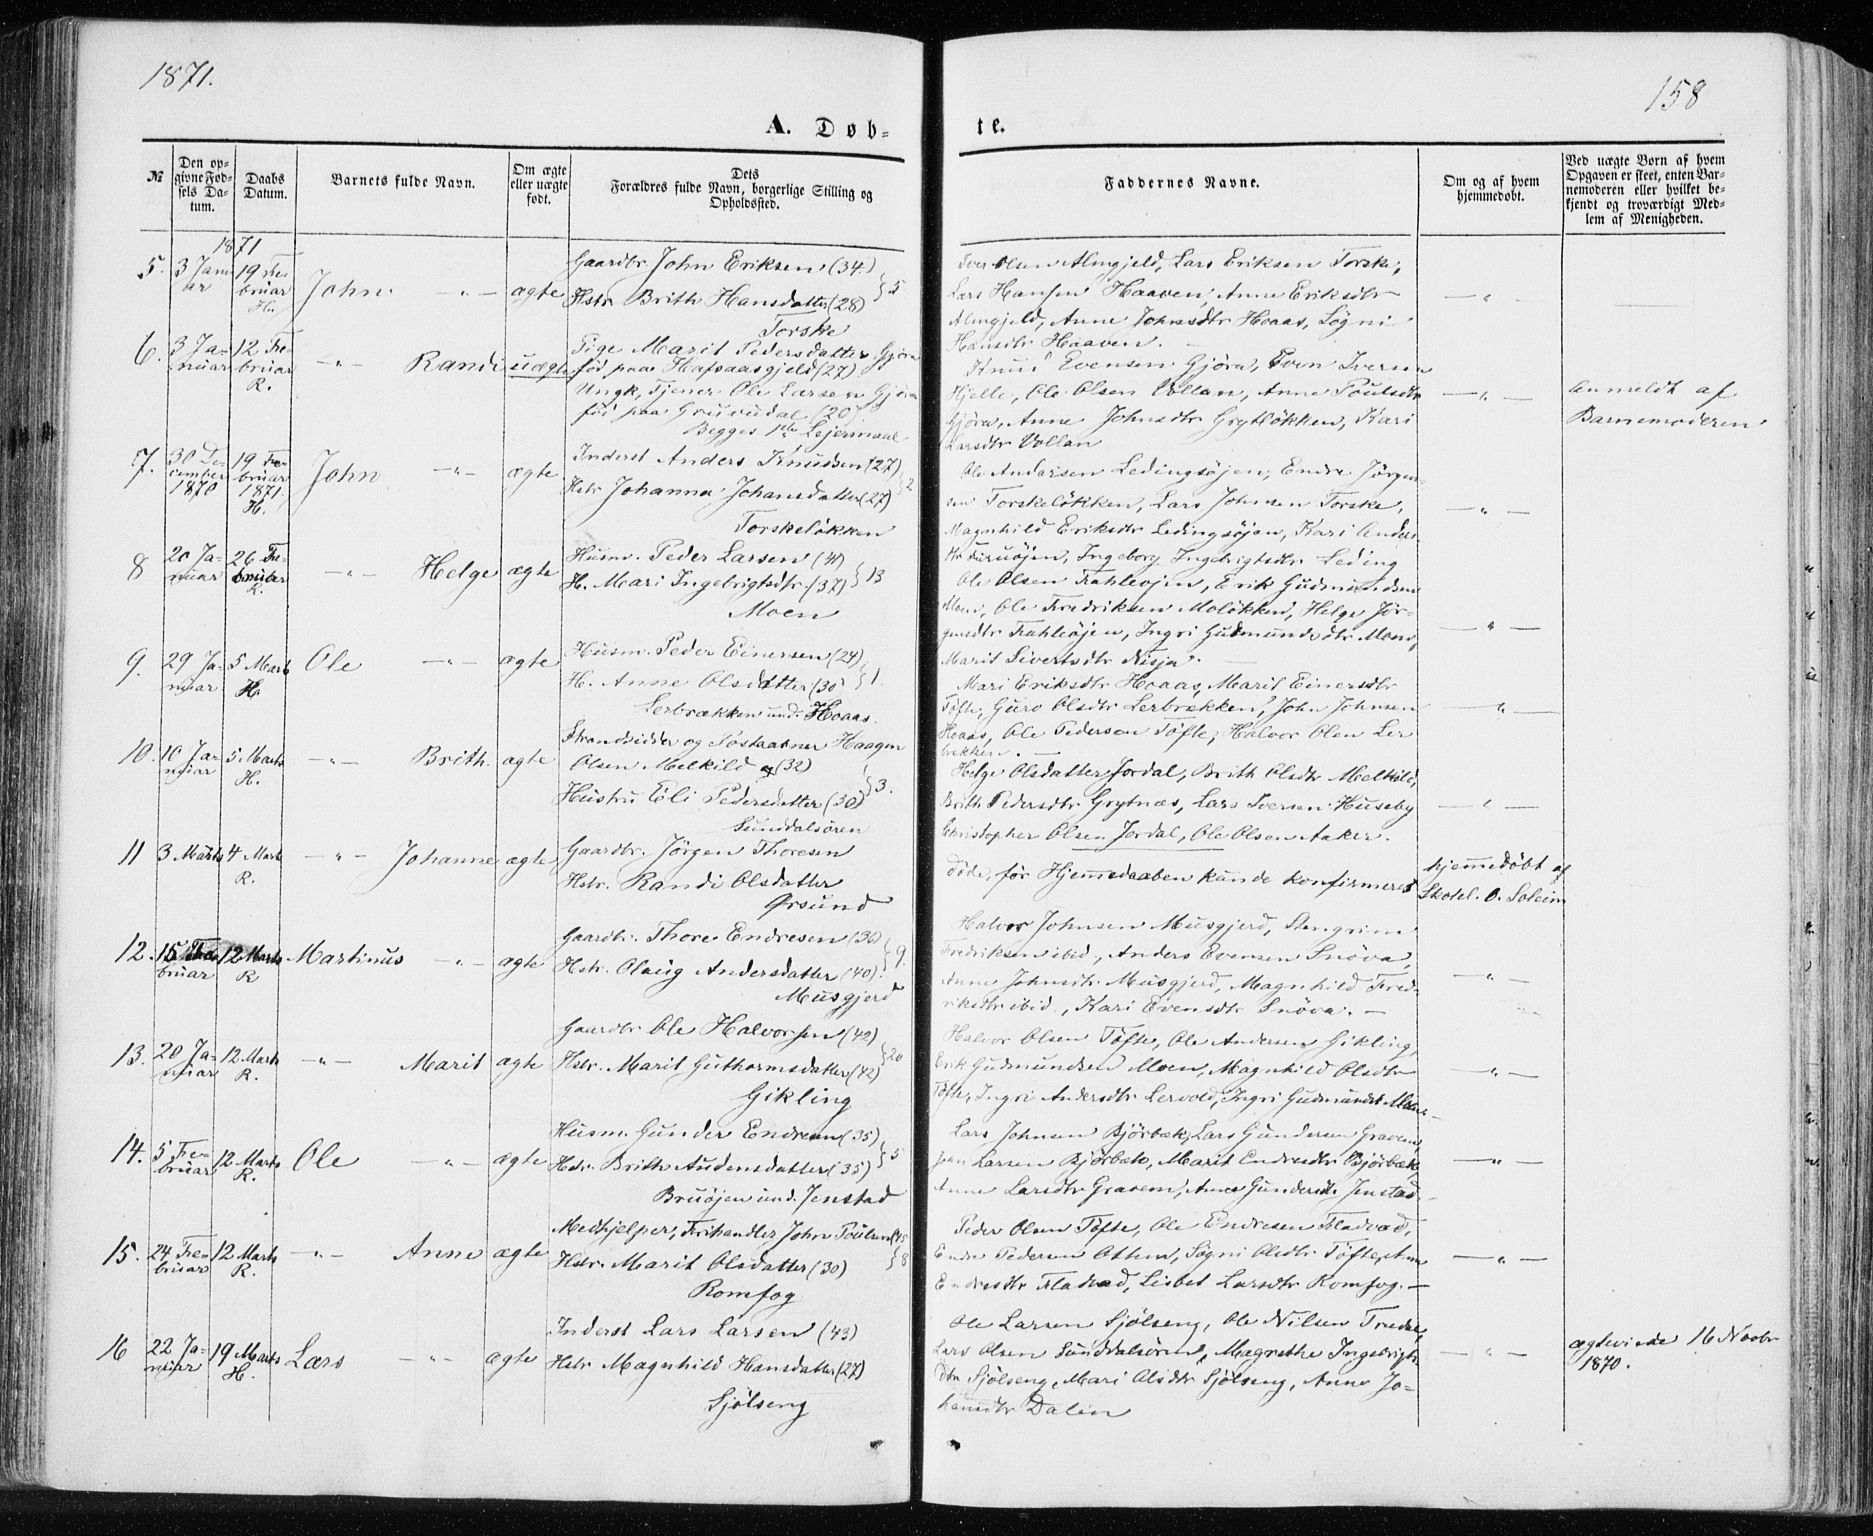 1871.
158
A. Døb-
te.
№
Den op-
givne Fød-
sels Da-
tum.
Daabs
Datum.
Barnets fulde Navn.
Om ægte
eller uægte
født.
Dets
Forældres fulde Navn, borgerlige Stilling og
Opholdssted.
Faddernes Navne.
Om og af hvem
hjemmedøbt.
Ved uægte Børn af hvem
Opgaven er skeet, enten Bar-
nemoderen eller hvilket be-
kjendt og troværdigt Med-
lem af Menigheden.
1871
5. 3 Janu-
ar
19 Fe-
bruar
H.
John -"- ægte
Gaardbr. John Eriksen (34)
Hstr. Brith Hansdatter (28) } 5
Torske
Iver Olsen Almgjeld, Lars Eriksen Torske,
Lars Hansen Haaven, Anne Eriksdtr
Almgjeld, Anne Johnsdtr Hoaas, Sögni
Hansdtr Haaven.
-"-
6. 3 Ja-
nuar
12 Fe-
bruar
R.
-"- Randi uægte
Pige Marit Pedersdatter Gjöra
föd paa Hafsaasgjeld (27)
Ungk. Tjener Ole Larsen Gjöra
föd paa Gruvudal (20)
Begges 1ste Lejermaal
Knut Evensen Gjöra, Even Iversen
Hjelle, Ole Olsen Vollan, Anne Poulsdtr
Gjöra, Anne Johnsdtr Grytlökken, Kari
Larsdtr Vollan
-"-
Anmeldt af
Barnemoderen
7. 30 De-
cember
1870
19 Fe-
bruar
1871.
H.
John -"- ægte
Inderst Anders Knudsen (27)
Hstr Johanna Johansdatter (27) } 2
Torskelökken
Ole Andersen Ledingsöjen, Endre Jörgen-
sen Torskelökken, Lars Johnsen Torske,
Magnhild Eriksdtr Ledingsöjen, Kari Anders
dtr Furuöjen, Ingeborg Ingebrigtsdtr Leding
-"-
8 20 Ja-
nuar
26 Fe-
bruar
R.
-"- Helge ægte
Husm. Peder Larsen (41)
H. Mari Ingebrigtsdtr. (37) } 13
Moen
Ole Olsen Fahleöjen, Erik Gudmundsen
Moen, Ole Fredriksen Molökken, Helge Jör-
gensdtr Fahleöjen, Ingri Gudmundsdtr Moen,
Marit Sivertsdtr Nisja.
-"-
9. 29 Ja-
nuar
5 Marts
H.
Ole -"- ægte
Husm. Peder Einersen (24)
H. Anne Olsdatter (30) } 1.
Lerbrækken und. Hoaas.
Mari Eriksdtr Hoaas, Marit Einersdtr
Töfte, Guro Olsdtr Lerbrækken, John Johnsen
Hoaas, Ole Pedersen Töfte, Halvor Olsen Ler
brækken.
-"-
10. 10 Ja-
nuar
5 Marts
H.
-"- Brith. ægte
Strandsidder og Postaabner Haagen
Olsen Melkild (32)
Hustru Eli Pedersdatter (30) } 3.
Sunddalsören
Helge Olsdatter Jordal, Brith Olsdtr Melkild,
Brith Pedersdtr. Grytnæs, Lars Iversen Huseby
Christopher Olsen Jordal, Ole Olsen Aaker.
-"-
11 3 Marts 4 Marts
R.
-"- Johanne ægte
Gaardbr. Jörgen Thoresen
Hstr. Randi Olsdatter
Örsund
döde, för Hjemmedaaben kunde konfirmeres
hjemmedöbt af
Skolel. O. Soleim
12. 15 Fe-
bruar
12 Marts
R
Martinus -"- ægte
Gaardbr. Thore Endresen (36)
Hstr. Olaug Andersdatter (40) } 9.
Musgjerd
Halvor Johnsen Musgjerd, Stengrim
Fredriksen ibid., Anders Evensen Snöva,
Anne Johnsdtr Musgjerd, Magnhild Fred-
riksdtr ibid., Kari Evensdtr Snöva. -
-"-
13. 20 Ja-
nuar
12 Marts
R.
-"- Marit ægte
Gaardbr Ole Halvorsen (42)
Hstr. Marit Guthormsdatter (42) } 20
Gikling
Halvor Olsen Töfte, Ole Andersen Gikling,
Erik Gudmundsen Moen, Magnhild Olsdtr
Töfte, Ingri Andersdtr Lervold, Ingri Gudmundsdt Moen.
-"-
14. 5 Fe-
bruar
12 Marts
R.
Ole -"- ægte
Husm. Gunder Endresen (35)
Hstr. Brith Audensdatter (35) } 5
Bruöjen und. Jenstad
Lars Johnsen Björbæk, Lars Gundersen Gravem,
John Larsen Björbæk, Marit Endresdtr Björbæk
Anne Larsdtr Gravem, Anne Gundersdtr Jenstad.
-"-
15. 24 Fe-
bruar
12 Marts
R.
-"- Anne ægte
Medhjelper, Frihandler John Poulsen (45)
Hstr. Marit Olsdatter (30) } 8
Romfog
Peder Olsen Töfte, Ole Endresen Fladvad,
Endre Pedersen Othem, Sögni Olsdtr Töfte, Anne
Endresdtr Fladvad, Lisbet Larsdtr Romfog. -
-"-
16 22 Ja-
nuar
19 Marts
H.
Lars -"- ægte
Inderst Lars Larsen (43)
Hstr Magnhild Hansdatter (27)
Sjölseng
Ole Larsen Sjölseng, Ole Nilsen Fredse,
Lars Olsen Sunddalsören, Magrethe Ingebrigts
dtr Sjölseng, Mari Olsdtr Sjölseng, Anne Jo-
hansdtr Dalen
-"-
ægteviede 16 Novbr
1870.